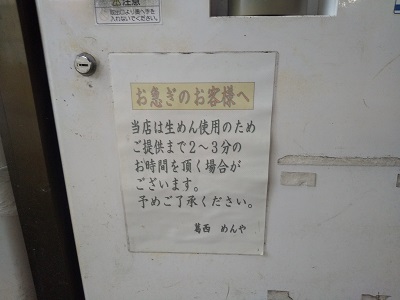 注意
入れないでください。
お急ぎのお客様へ
当店は生めん使用のため
ご提供まで2～3分の
お時間を頂く場合が
ございます。
予めご了承ください。
葛西 めんや